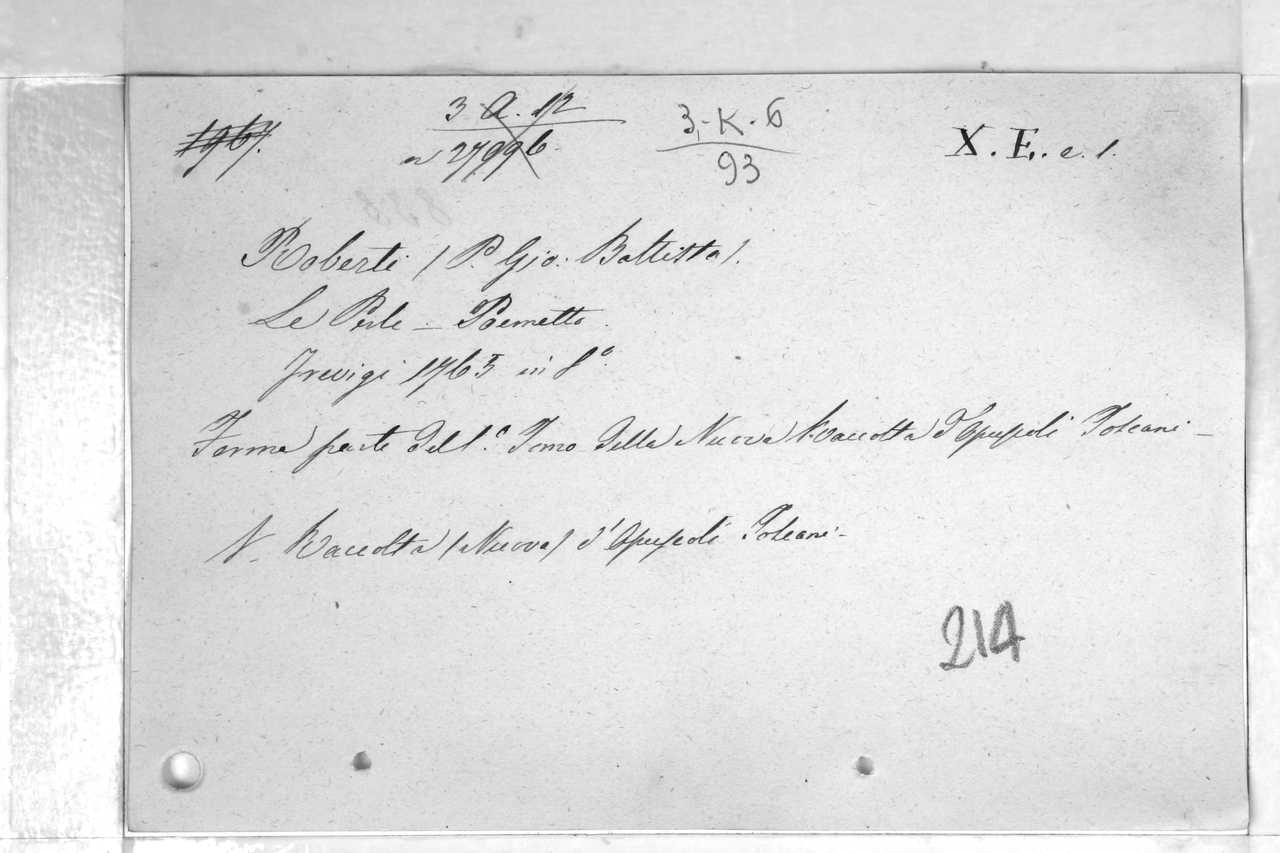 1967.
3 A. 12
n 27996.
3.-K.6
93
X. F. e. 1.
Roberti (P. Gio: Battista).
Le Perle - Poemetto.
Trevigi 1763 in 8º
Forma parte del 1.º Tomo della Nuova Raccolta d'Opuscoli Toscani -
V. Raccolta (Nuova) d'Opuscoli Toscani -
214